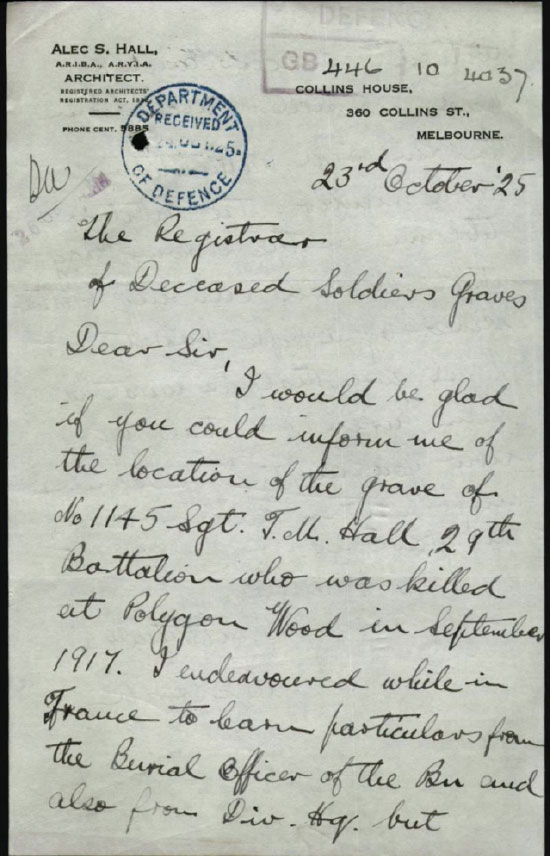 ALEC S. HALL,
A.R.I.B.A., A.R.V.I.A.
ARCHITECT.
REGISTERED ARCHITECTS'
REGISTRATION ACT,
PHONE CENT. 5885
DEPARTMENT
RECEIVED
25
OF DEFENCE
DEFENCE
GB
446 10 4037
COLLINS HOUSE,
360 COLLINS ST.,
MELBOURNE.
23rd October '25
The Registrar
of Deceased Soldiers Graves
Dear Sir,
I would be glad
if you could inform me of
the location of the grave of
No 1145 Sgt. T. M. Hall, 29th
Battalion who was killed
at Polygon Wood in September
1917. I endeavoured while in
France to learn particulars from
the Burial Officer of the Bn and
also from Div. Hq. but